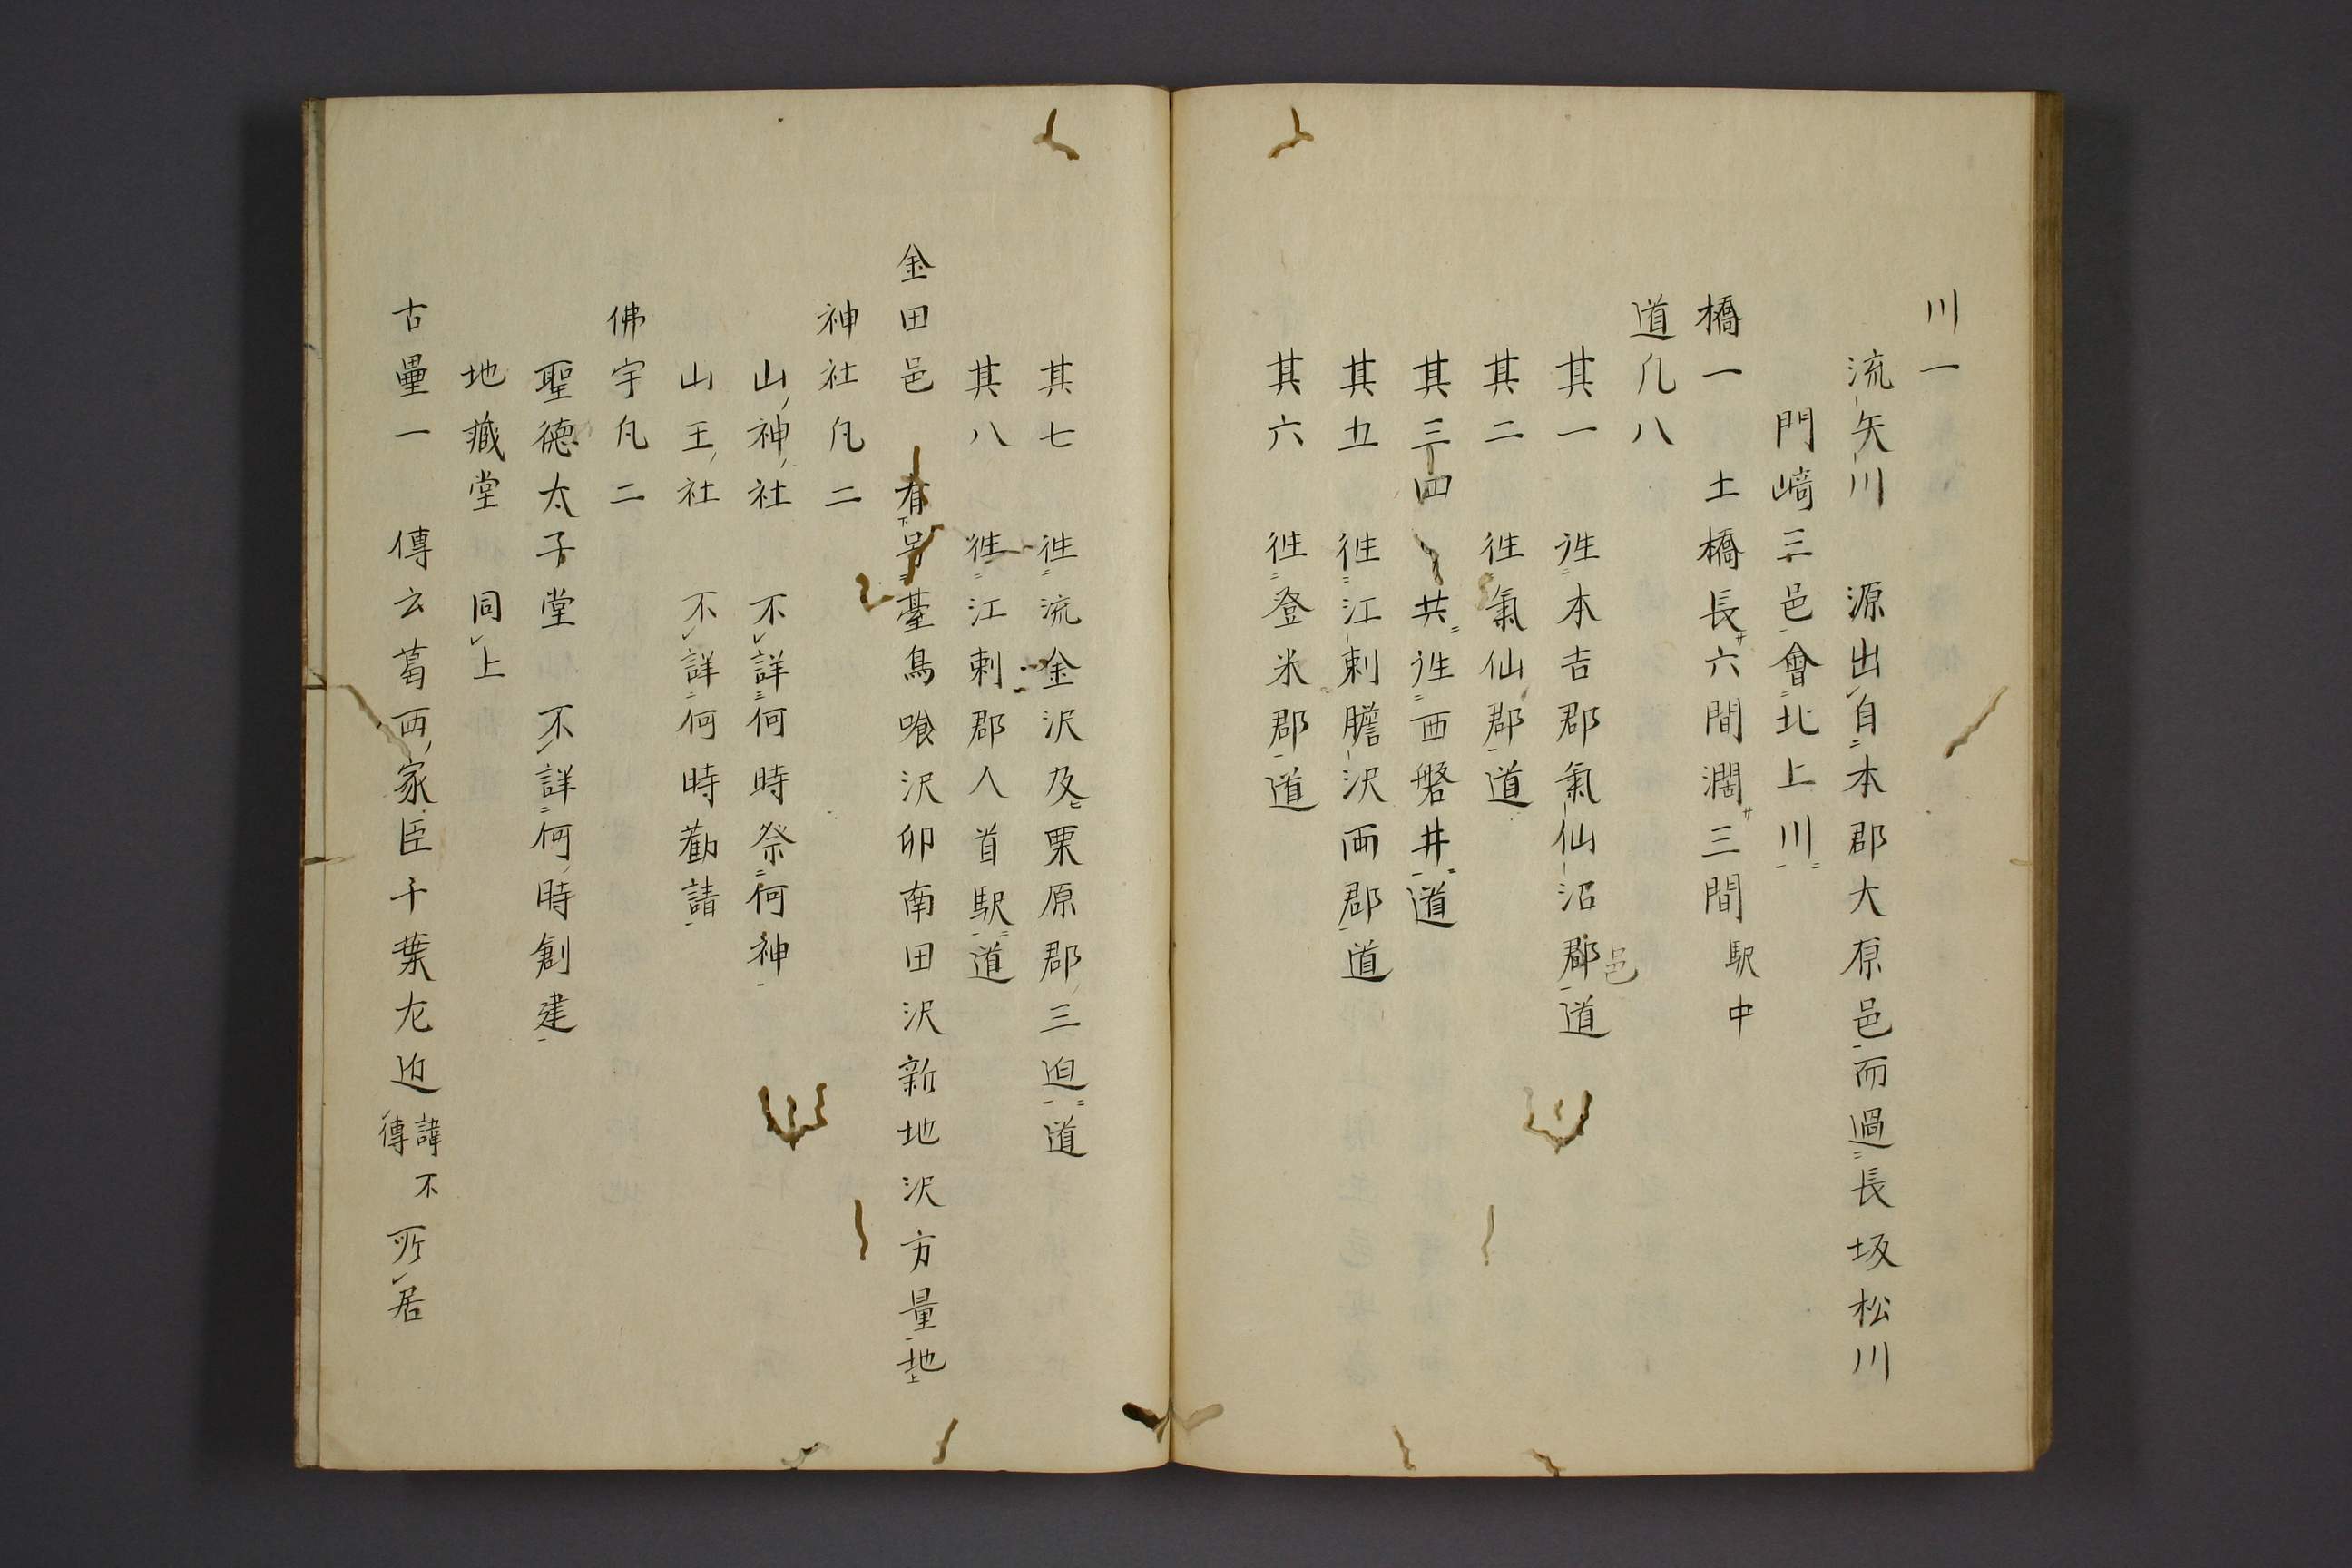 川一
流矢川 源出自本郡大原邑而過長坂松川
門﨑三邑會北上川
橋一 土橋長サ六間濶サ三間 駅中
道凡八
其一 徃本吉郡氣仙沼郡道
邑
其二 徃氣仙郡道
其三四 共徃西磐井道
其五 徃江刺膽沢两郡道
其六 徃登米郡道
其七 徃流金沢及ヒ栗原郡三迫道
其八 徃江刺郡人首駅道
金田邑 有号臺鳥喰沢卯南田沢新地沢方量地
神社凡二
山ノ神ノ社 不詳何時祭何神
山王ノ社 不詳何時勸請
佛宇凡二
聖德太子堂 不詳何時創建
地藏堂 同上
古壘一 傳云葛西ノ家臣千葉左近諱不傳所居